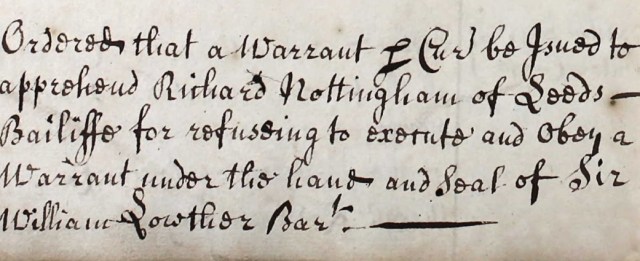 Ordered that a Warrant ꝑ Cur be Issued to
apprehend Richard Nottingham of Leeds —
Bailiffe for refuseing to execute and Obey a
Warrant under the hand and Seal of Sir
William Lowther Bart. —